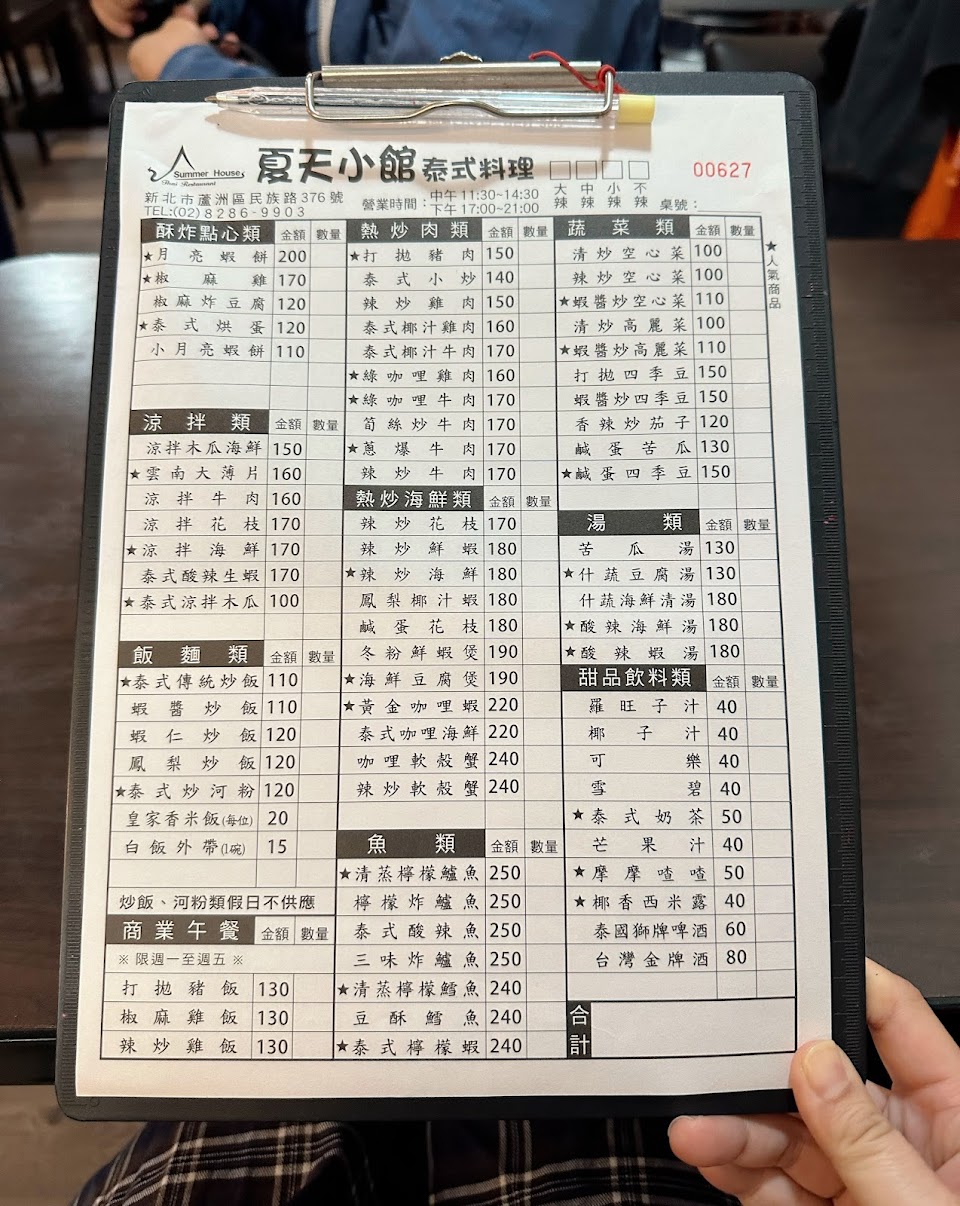 Summer House
Thai Restaurant
夏天小館 泰式料理 □□□□ 00627
大辣 中辣 小辣 不辣 桌號：
新北市蘆洲區民族路376號
TEL:(02)8286-9903
營業時間：中午11:30~14:30
下午17:00~21:00
★人氣商品
酥炸點心類 金額 數量
★月亮蝦餅 200
★椒麻雞 170
椒麻炸豆腐 120
★泰式烘蛋 120
小月亮蝦餅 110
涼拌類 金額 數量
涼拌木瓜海鮮 150
★雲南大薄片 160
涼拌牛肉 160
涼拌花枝 170
★涼拌海鮮 170
泰式酸辣生蝦 170
★泰式涼拌木瓜 100
飯麵類 金額 數量
★泰式傳統炒飯 110
蝦醬炒飯 110
蝦仁炒飯 120
鳳梨炒飯 120
★泰式炒河粉 120
皇家香米飯(每位) 20
白飯外帶(1碗) 15
炒飯、河粉類假日不供應
商業午餐 金額 數量
※ 限週一至週五 ※
打拋豬飯 130
椒麻雞飯 130
辣炒雞飯 130
熱炒肉類 金額 數量
★打拋豬肉 150
泰式小炒 140
辣炒雞肉 150
泰式椰汁雞肉 160
泰式椰汁牛肉 170
★綠咖哩雞肉 160
★綠咖哩牛肉 170
筍絲炒牛肉 170
★蔥爆牛肉 170
辣炒牛肉 170
熱炒海鮮類 金額 數量
辣炒花枝 170
辣炒鮮蝦 180
★辣炒海鮮 180
鳳梨椰汁蝦 180
鹹蛋花枝 180
冬粉鮮蝦煲 190
★海鮮豆腐煲 190
★黃金咖哩蝦 220
泰式咖哩海鮮 220
咖哩軟殼蟹 240
辣炒軟殼蟹 240
魚類 金額 數量
★清蒸檸檬鱸魚 250
檸檬炸鱸魚 250
泰式酸辣魚 250
三味炸鱸魚 250
★清蒸檸檬鱈魚 240
豆酥鱈魚 240
★泰式檸檬蝦 240
蔬菜類 金額 數量
清炒空心菜 100
辣炒空心菜 100
★蝦醬炒空心菜 110
清炒高麗菜 100
★蝦醬炒高麗菜 110
打拋四季豆 150
蝦醬炒四季豆 150
香辣炒茄子 120
鹹蛋苦瓜 130
★鹹蛋四季豆 150
湯類 金額 數量
苦瓜湯 130
★什蔬豆腐湯 130
什蔬海鮮清湯 180
★酸辣海鮮湯 180
★酸辣蝦湯 180
甜品飲料類 金額 數量
羅旺子汁 40
椰子汁 40
可樂 40
雪碧 40
★泰式奶茶 50
芒果汁 40
★摩摩喳喳 50
★椰香西米露 40
泰國獅牌啤酒 60
台灣金牌酒 80
合計